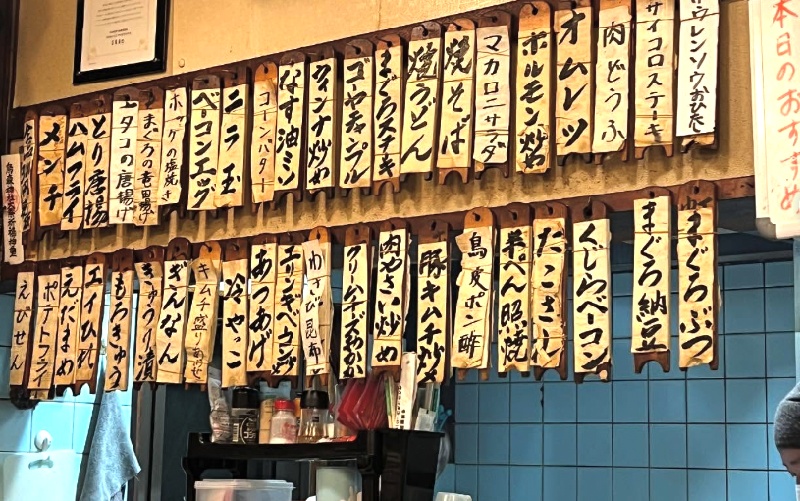 本日のおすすめ
ウレンソウおひたし
サイコロステーキ
肉どうふ
オムレツ
ホルモン炒め
マカロニサラダ
焼そば
焼うどん
まぐろステーキ
ゴーヤチャンプル
ウィンナ炒め
なす油ミソ
コーンバター
ニラ玉
ベーコンエッグ
ホッケの塩焼き
まぐろの竜田揚げ
タコの唐揚げ
とり唐揚
ハムフライ
メンチ
まぐろぶつ
まぐろ納豆
くじらベーコン
たこさし
半ぺん照焼
鳥皮ポン酢
豚キムチ炒め
肉やさい炒め
クリームチーズおかか
わさび昆布
エリンギベーコン炒め
あつあげ
冷やっこ
キムチ盛り合わせ
ぎんなん
きゅうり漬
もろきゅう
エイヒレ
えだまめ
ポテトフライ
えびせん